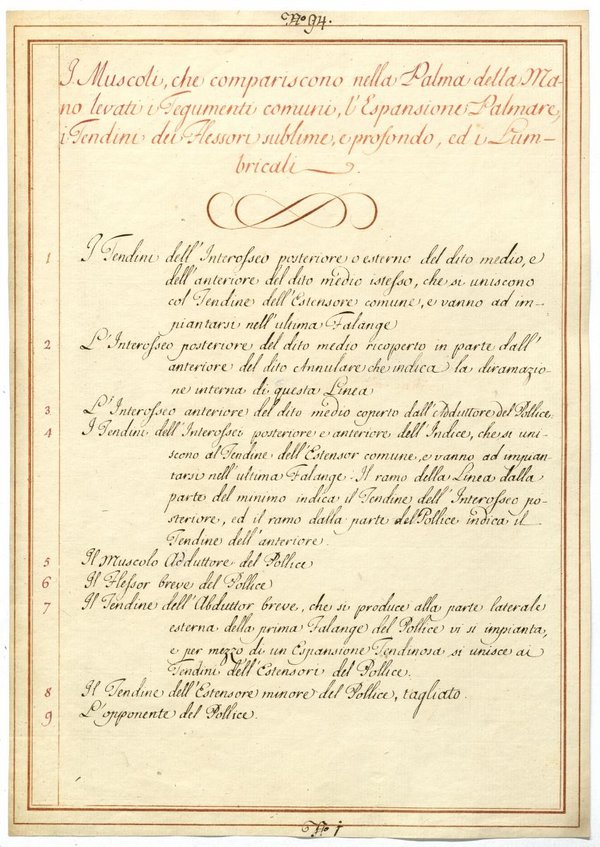 No 94.
I Muscoli, che compariscono nella Palma della Ma-
no levati i Tegumenti comuni, l'Espansione Palmare,
i Tendini dei Flessori sublime, e profondo, ed i Lum-
bricali
1 I Tendini dell'Interosseo posteriore o esterno del dito medio, e
dell'anteriore del dito medio istesso, che si uniscono
col Tendine dell'Estensore comune, e vanno ad im-
piantarsi nell'ultima Falange
2 L'Interosseo posteriore del dito medio ricoperto in parte dall'
anteriore del dito Annulare che indica la diramazio-
ne interna di questa Linea
3 L'Interosseo anteriore del dito medio coperto dall'Adduttore del Pollice
4 I Tendini dell'Interossei posteriore e anteriore dell'Indice, che si uni-
scono al Tendine dell'Estensor comune, e vanno ad impian-
tarsi nell'ultima Falange. Il ramo della Linea dalla
parte del minimo indica il Tendine dell'Interosseo po-
steriore, ed il ramo dalla parte del Pollice indica il
Tendine dell'anteriore.
5 Il Muscolo Adduttore del Pollice
6 Il Flessor breve del Pollice
7 Il Tendine dell'Abduttor breve, che si produce alla parte laterale
esterna della prima Falange del Pollice vi si impianta,
e per mezzo di un Espansione Tendinosa si unisce ai
Tendini dell'Estensori del Pollice.
8 Il Tendine dell'Estensore minore del Pollice, tagliato.
9 L'opponente del Pollice.
No 1